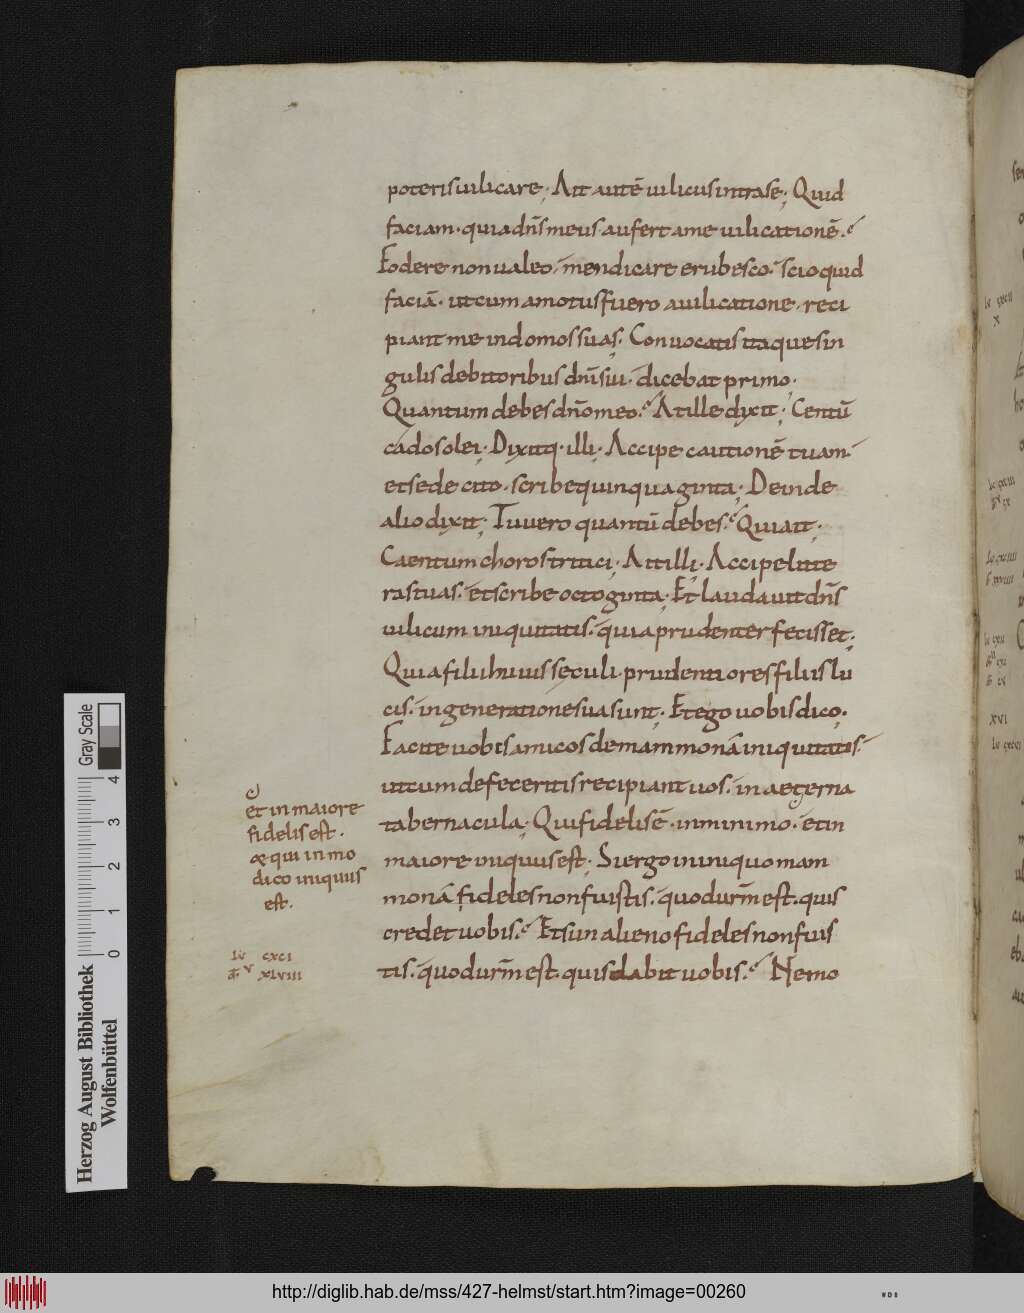 poteris uilicare; Ait autē uilicus intra se; Quid
faciam· quia dn̄s meus aufert a me uilicationē·
Fodere non ualeo· mendicare erubesco· scio quid
faciā· ut cum amotus fuero a uilicatione· reci
piant me in domos suas; Conuocatis itaque sin
gulis debitoribus dn̄i sui· dicebat primo·
Quantum debes dn̄o meo· At ille dixit; Centū
cados olei; Dixitq· illi; Accipe cautionē tuam·
et sede cito· scribe quinquaginta; Deinde
alio dixit; Tu uero quantū debes· Qui ait;
Caentum choros tritici; Ait illi; Accipe litte
ras tuas· et scribe octoginta; Et laudauit dn̄s
uilicum iniquitatis· quia prudenter fecisset;
Quia filii huius seculi· prudentiores filiis lu
cis· in generatione sua sunt; Et ego uobis dico;
Facite uobis amicos de mammonā iniquitatis·
ut cum defeceritis recipiant uos· in aeterna
tabernacula; Qui fidelis ē· in minimo· et in
maiore iniquus est; Si ergo in iniquo mam
monā fideles non fuistis· quod urm̄ est· quis
credet uobis· Et si in alieno fideles non fuis
tis· quod urm̄ est· quis dabit uobis· Nemo
et in maiore
fidelis est·
& qui in mo
dico iniquus
est·
Lu cxci
m̄ v xlviii
Gray Scale
0 1 2 3 4
Herzog August Bibliothek
Wolfenbüttel
http://diglib.hab.de/mss/427-helmst/start.htm?image=00260